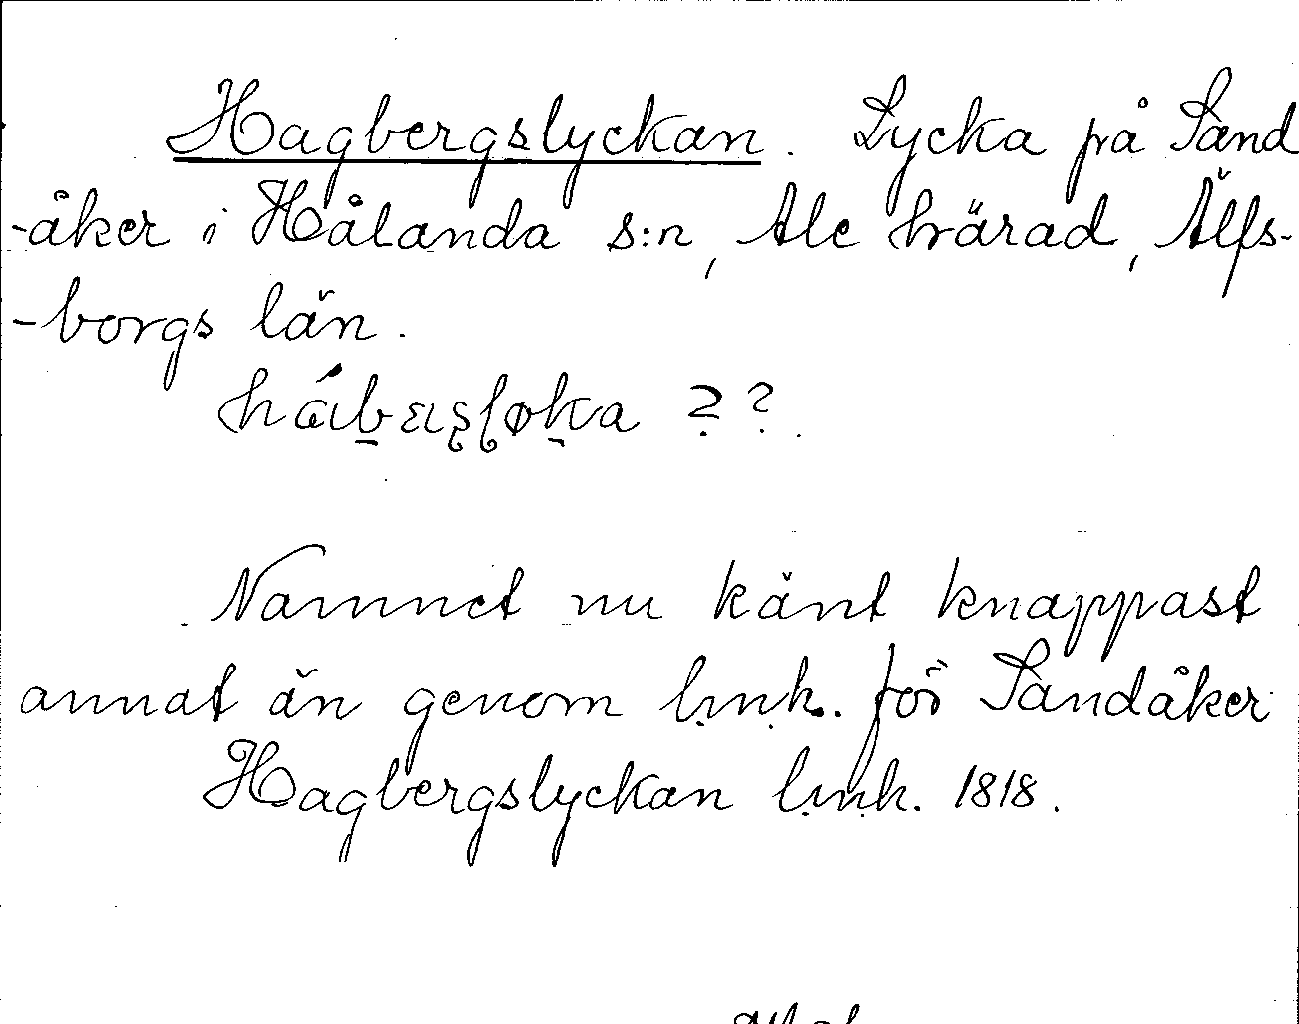 Hagbergslyckan. Lycka på Sand
-åker i Hålanda s:n, Ale härad, Älfs-
-borgs län.
? ?.
Namnet nu känt knappast
annat än genom l.m.h. för Sandåker
Hagbergslyckan l.m.h. 1818.